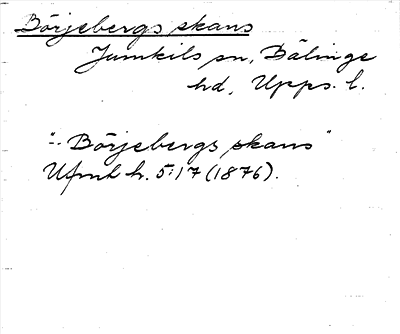 Börjebergs skans
Jumkils sn, Bälinge
hd, Upps. l.
"-- Börjebergs skans"
Ufmt h. 5:17 (1876).